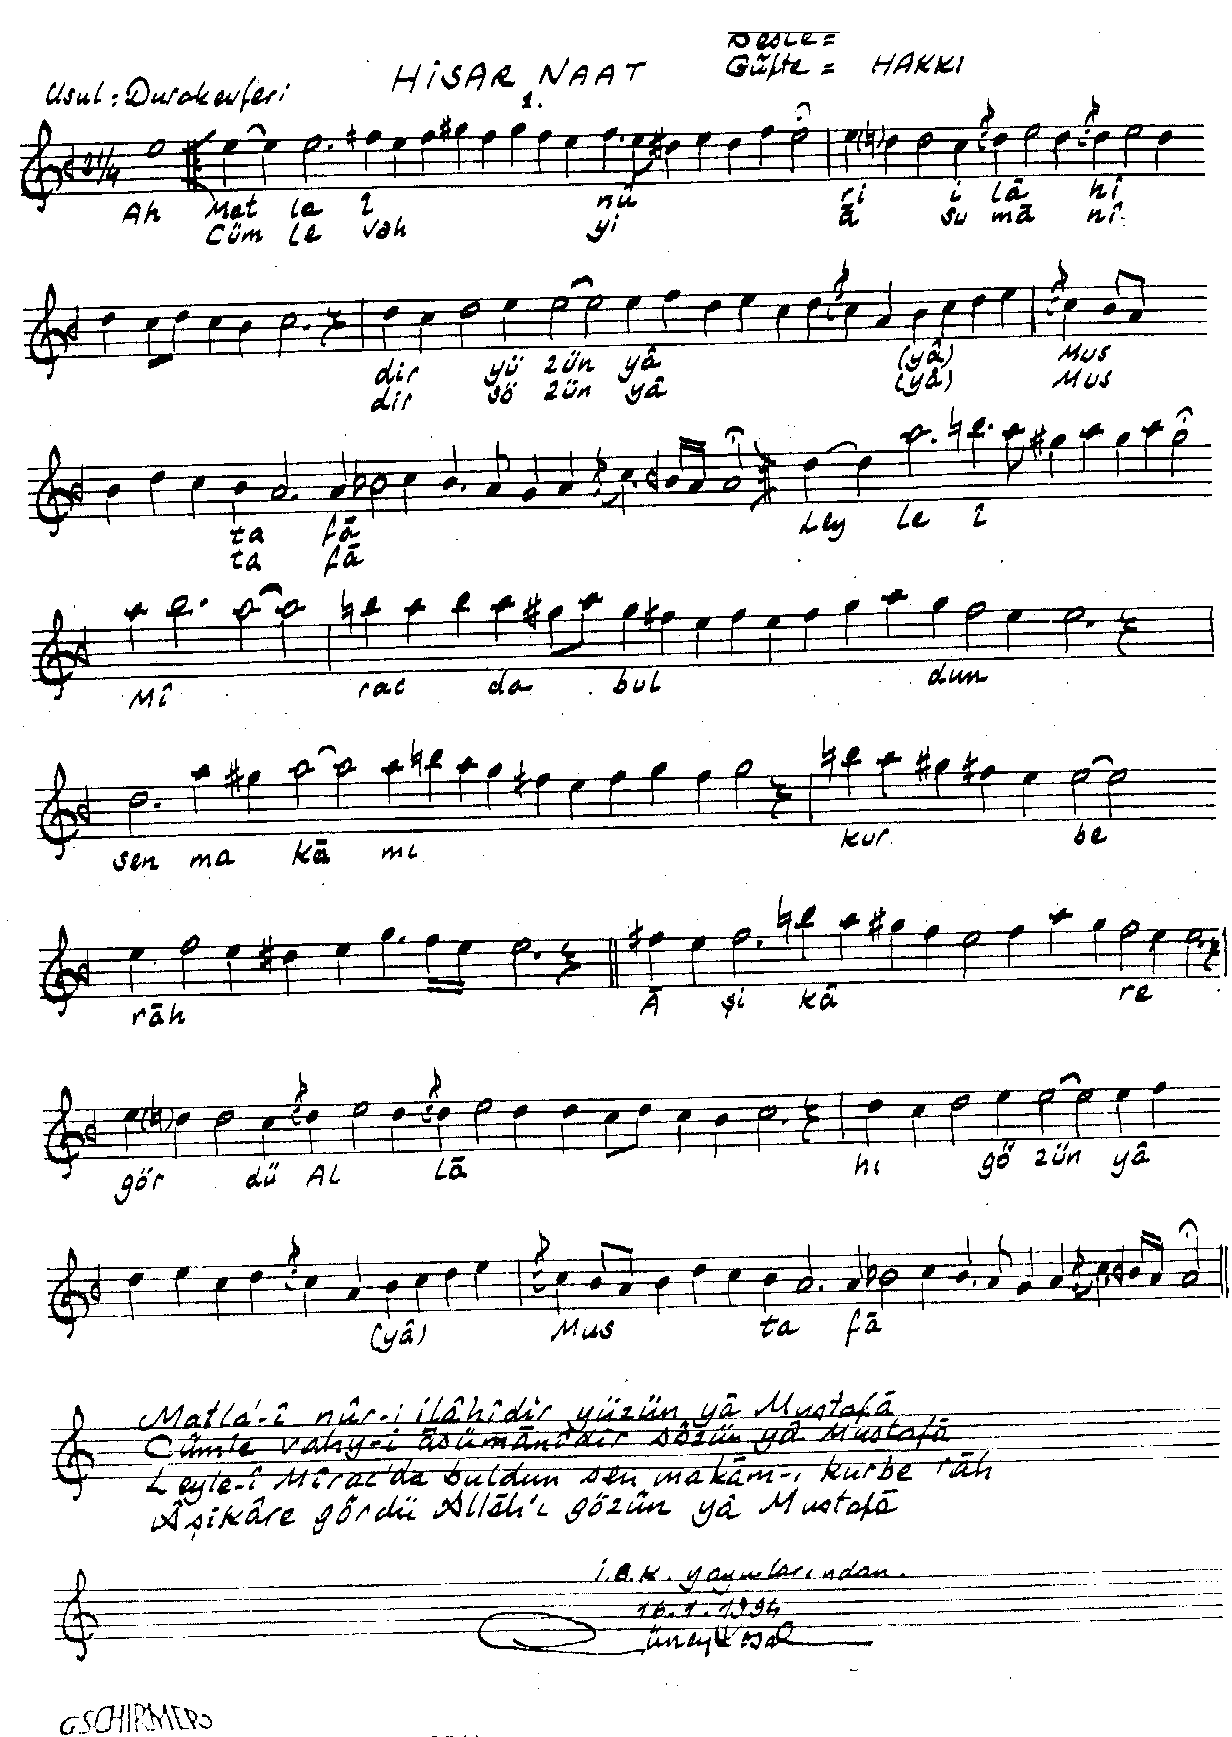 Beste =
Güfte = HAKKI
HİSAR NAAT
Usul: Durakevferi
1.
21/4
Ah Mat le i nü ri i lâ hî
Cüm le vah yi ā su mā nî
dir yü zün yâ (yâ) Mus
dir sö zün yâ (yâ) Mus
ta fā Ley le i
ta fā
Mî rac da bul dun
sen ma kā mı kur be
râh Ā şi kâ re
gör dü Al lā hı gö zün yâ
(yâ) Mus ta fā
Matla'-î nûr-i ilâhîdir yüzün yâ Mustafā
Cümle vahy-i āsümānîdir sözün yâ Mustafā
Leyle-î Mîrac'da buldun sen makām-ı kurbe râh
Âşikâre gördü Allāh'ı gözün yâ Mustafā
i.a.k. yayınlarından.
16.1.1994
G SCHIRMER